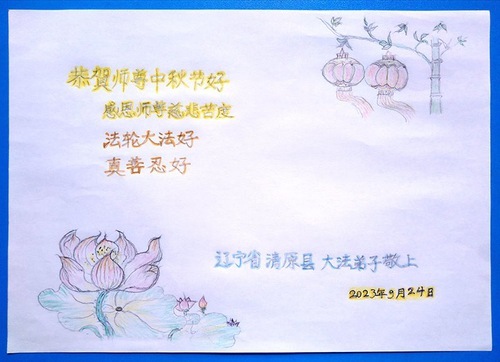 恭賀师尊中秋节好
感恩师尊慈悲苦度
法轮大法好
真善忍好
辽宁省 清原县 大法弟子敬上
2023年9月24日